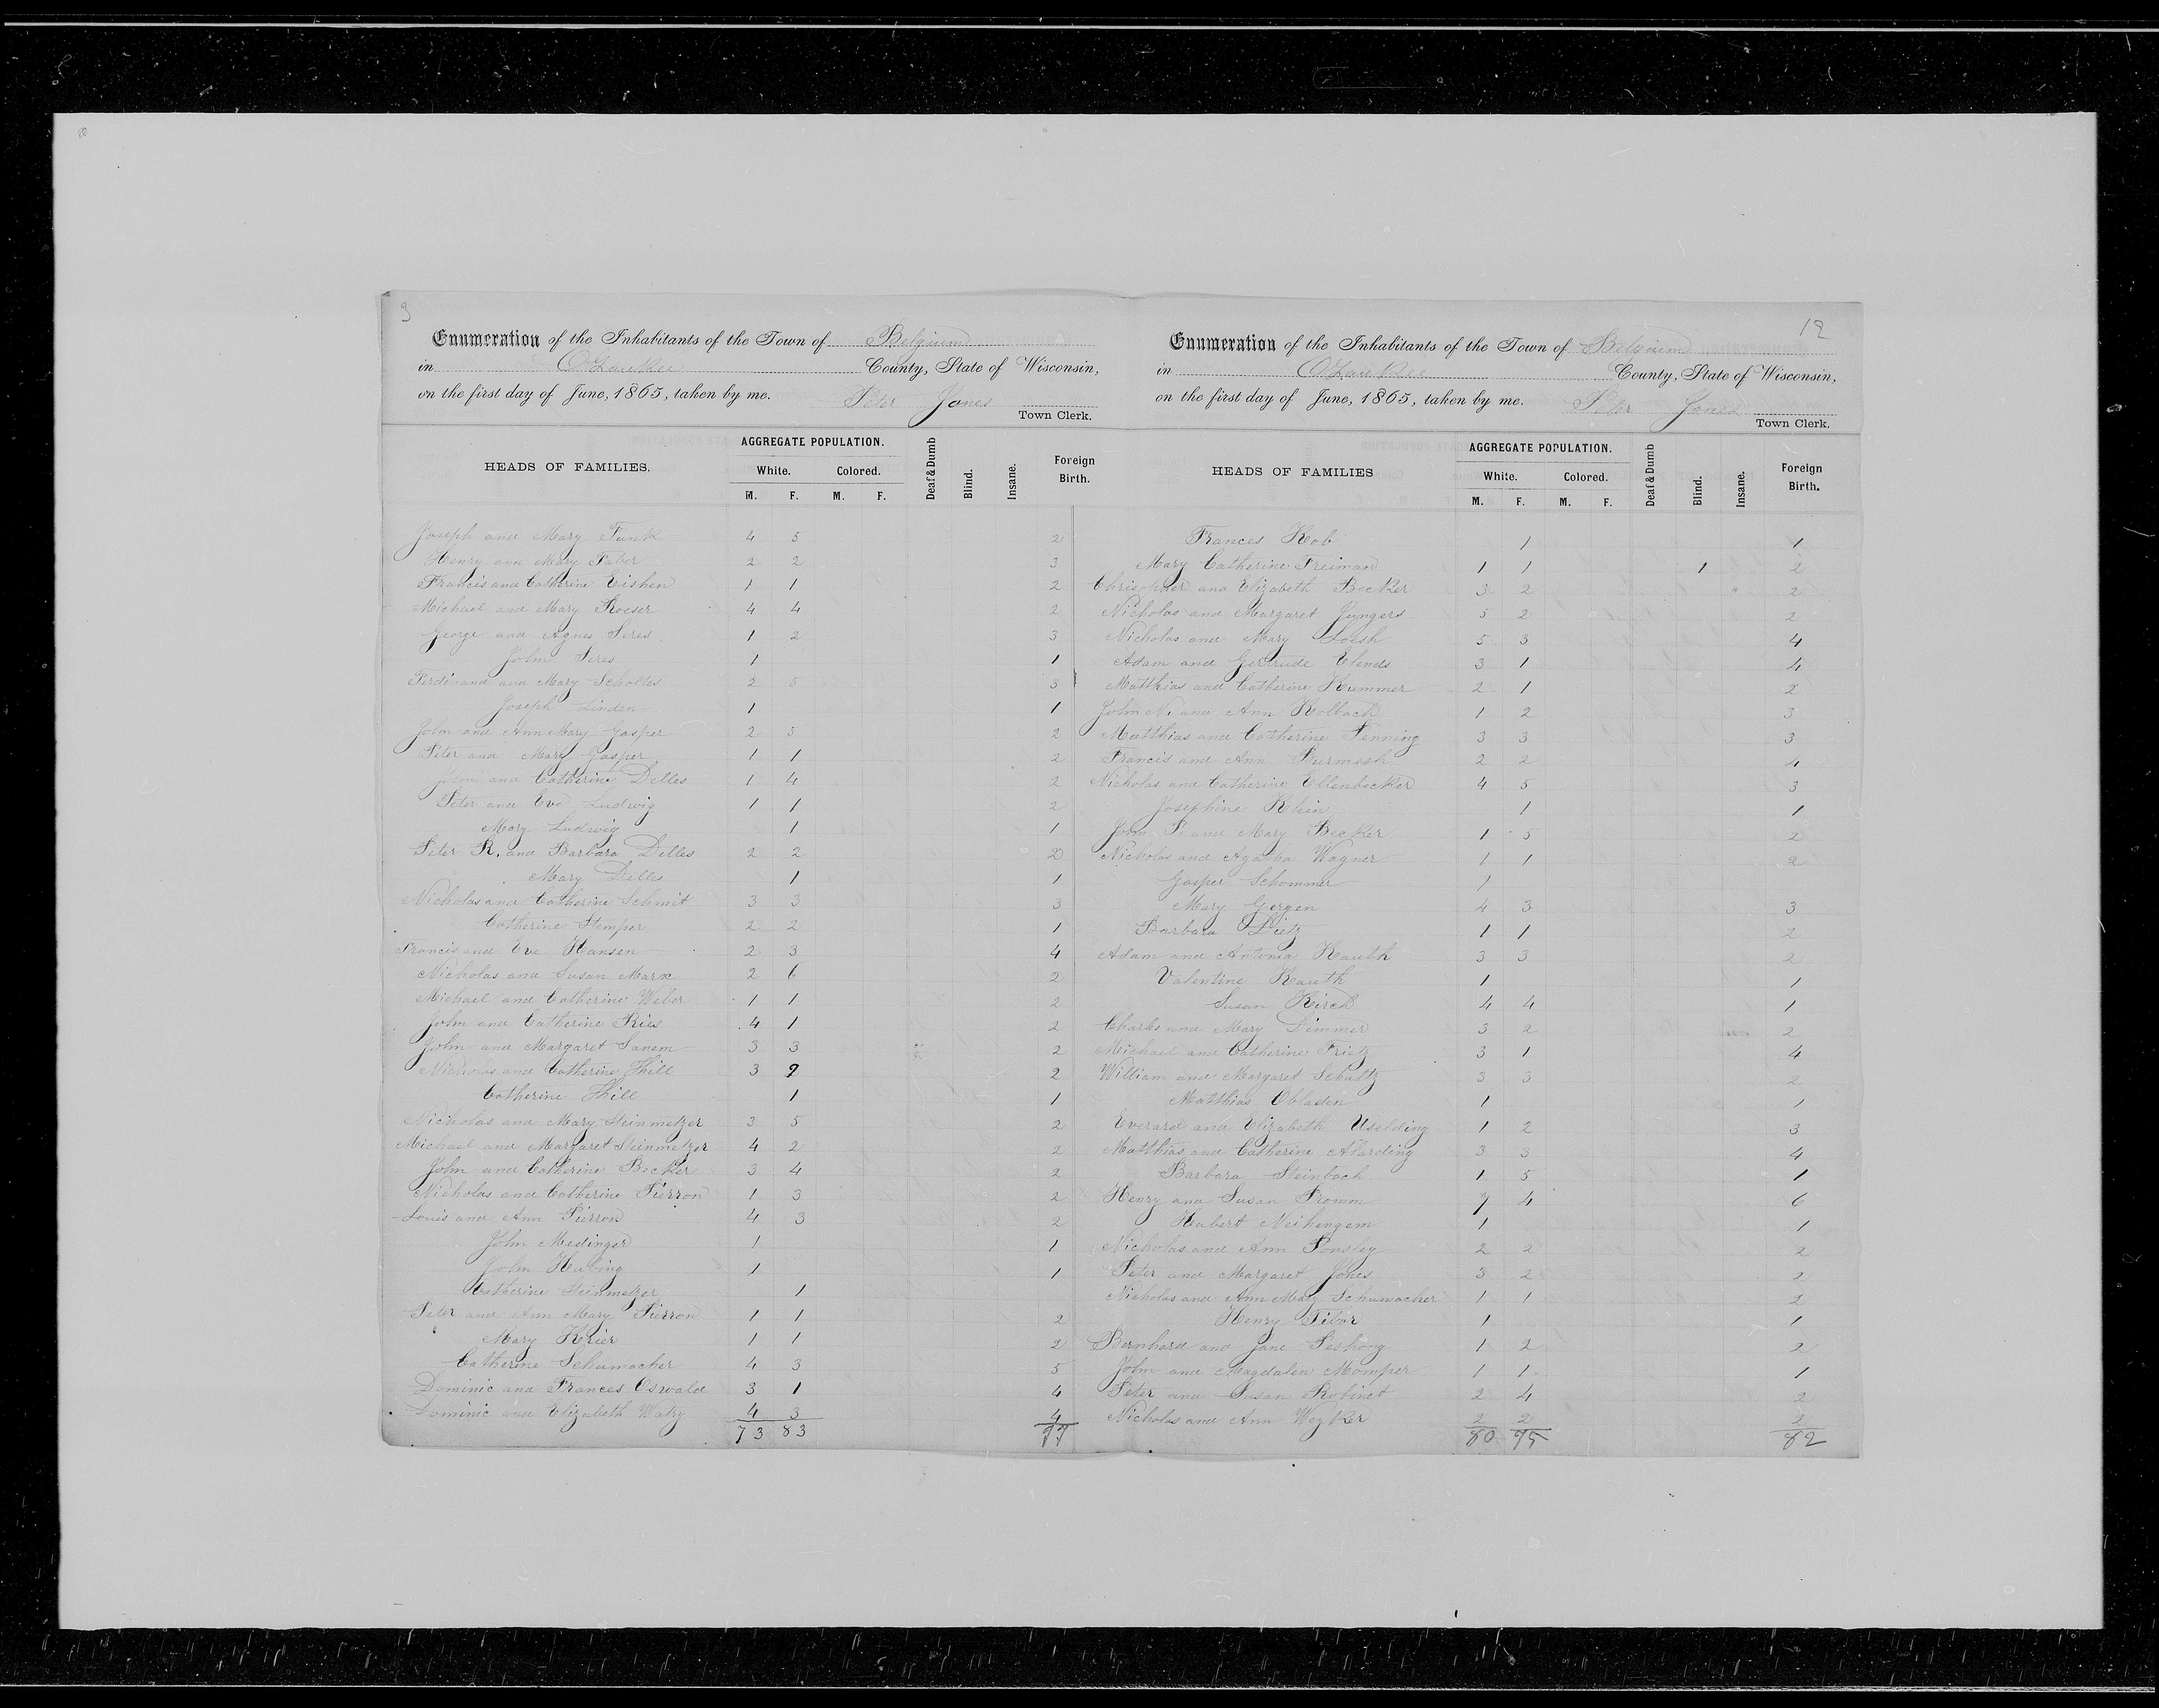 9
Enumeration of the Inhabitants of the Town of Belgium
in Ozaukee County, State of Wisconsin,
on the first day of June, 1865, taken by me. Peter Jones
Town Clerk.
HEADS OF FAMILIES. AGGREGATE POPULATION. Deaf & Dumb Blind. Insane. Foreign Birth.
White. Colored.
M. F. M. F.
Joseph and Mary Funk 4 5 2
Henry and Mary Faber 2 2 3
Francis and Catherine Eishen 1 1 2
Michael and Mary Roeser 4 4 2
George and Agnes Seres 1 2 3
John Seres 1 1
Ferdinand and Mary Scholtes 2 5 3
Joseph Linden 1 1
John and Ann Mary Gasper 2 5 2
Peter and Mary Gasper 1 1 2
John and Catherine Delles 1 4 2
Peter and Eve Ludwig 1 1 2
Mary Ludwig 1 1
Peter R. and Barbara Delles 2 2 2
Mary Delles 1 1
Nicholas and Catherine Schmit 3 3 3
Catherine Stemper 2 2 1
Francis and Eve Hansen 2 3 4
Nicholas and Susan Marx 2 6 2
Michael and Catherine Weber 1 1 2
John and Catherine Ries 4 1 2
John and Margaret Sanem 3 3 2
Nicholas and Catherine Thill 3 2
Catherine Thill 1 1
Nicholas and Mary Steinmetzer 3 5 2
Michael and Margaret Steinmetzer 4 2 2
John and Catherine Becker 3 4 2
Nicholas and Catherine Pierron 1 3 2
Louis and Ann Pierron 4 3 2
John Medinger 1 1
John Hubing 1 1
Catherine Steinmetzer 1
Peter and Ann Mary Pierron 1 1 2
Mary Krier 1 1 2
Catherine Schumacher 4 3 5
Dominic and Frances Oswald 3 1 4
Dominic and Elizabeth Watry 4 3 4
73 83 77
12
Enumeration of the Inhabitants of the Town of Belgium
in Ozaukee County, State of Wisconsin,
on the first day of June, 1865, taken by me. Peter Jones
Town Clerk.
HEADS OF FAMILIES AGGREGATE POPULATION. Deaf & Dumb Blind. Insane. Foreign Birth.
White. Colored.
M. F. M. F.
Frances Kob 1 1
Mary Catherine Freiman 1 1 1 2
Christopher and Elizabeth Becker 3 2 2
Nicholas and Margaret Jungers 5 2 2
Nicholas and Mary Loesh 5 3 4
Adam and Gertrude Elends 3 1 4
Matthias and Catherine Kummer 2 1 2
John N. and Ann Kolbach 1 2 3
Matthias and Catherine Fenning 3 3 3
Francis and Ann Burmesh 2 2 4
Nicholas and Catherine Ellenbecker 4 5 3
Josephine Klein 1 1
John P. and Mary Becker 1 5 2
Nicholas and Agatha Wagner 1 1 2
Gasper Schommer 1
Mary Gergen 4 3 3
Barbara Dietz 1 1 2
Adam and Antonia Rauth 3 3 2
Valentine Rauth 1 1
Susan Kirch 4 4 1
Charles and Mary Dimmer 3 2 2
Michael and Catherine Frietz 3 1 4
William and Margaret Schultz 3 3 2
Matthias Obladen 1 1
Everard and Elizabeth Uselding 1 2 3
Matthias and Catherine Alarding 3 3 4
Barbara Steinbach 1 5 1
Henry and Susan Fromm 7 4 6
Hubert Neihengem 1 1
Nicholas and Ann Ponsley 2 2 2
Peter and Margaret Jones 3 2 2
Nicholas and Ann Mary Schumacher 1 1 2
Henry Tibor 1 1
Bernhard and Jane Peshong 1 2 2
John and Magdalen Momper 1 1 1
Peter and Susan Robinet 2 4 2
Nicholas and Ann Weyker 2 2 2
80 75 82